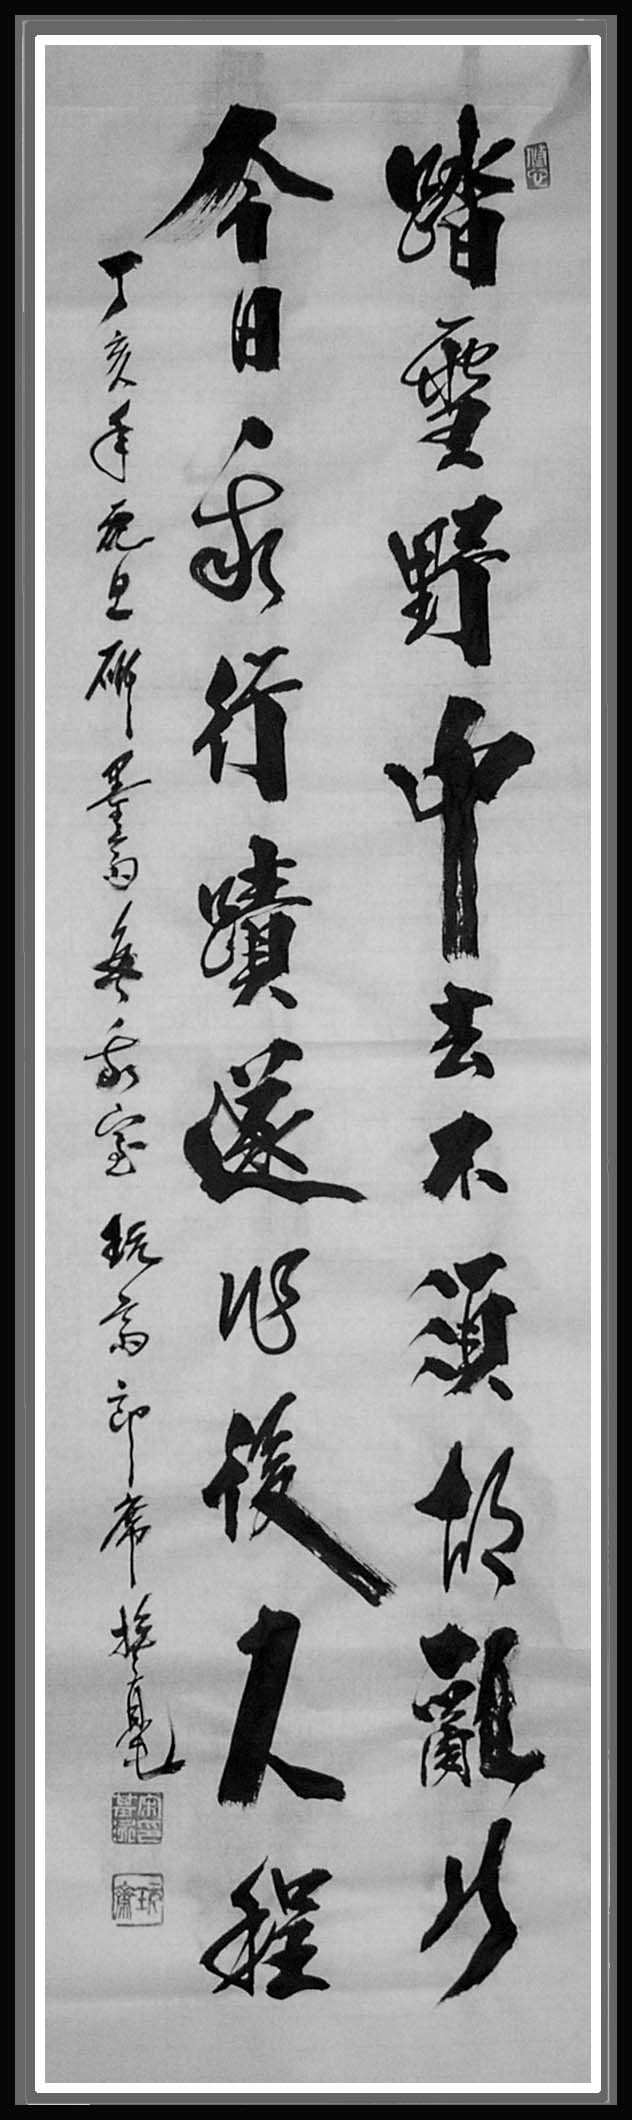 踏雪野中去不須胡亂行
今日我行蹟遂作後人程
丁亥年元旦研墨無我室玩齋即席揮毫
玩齋